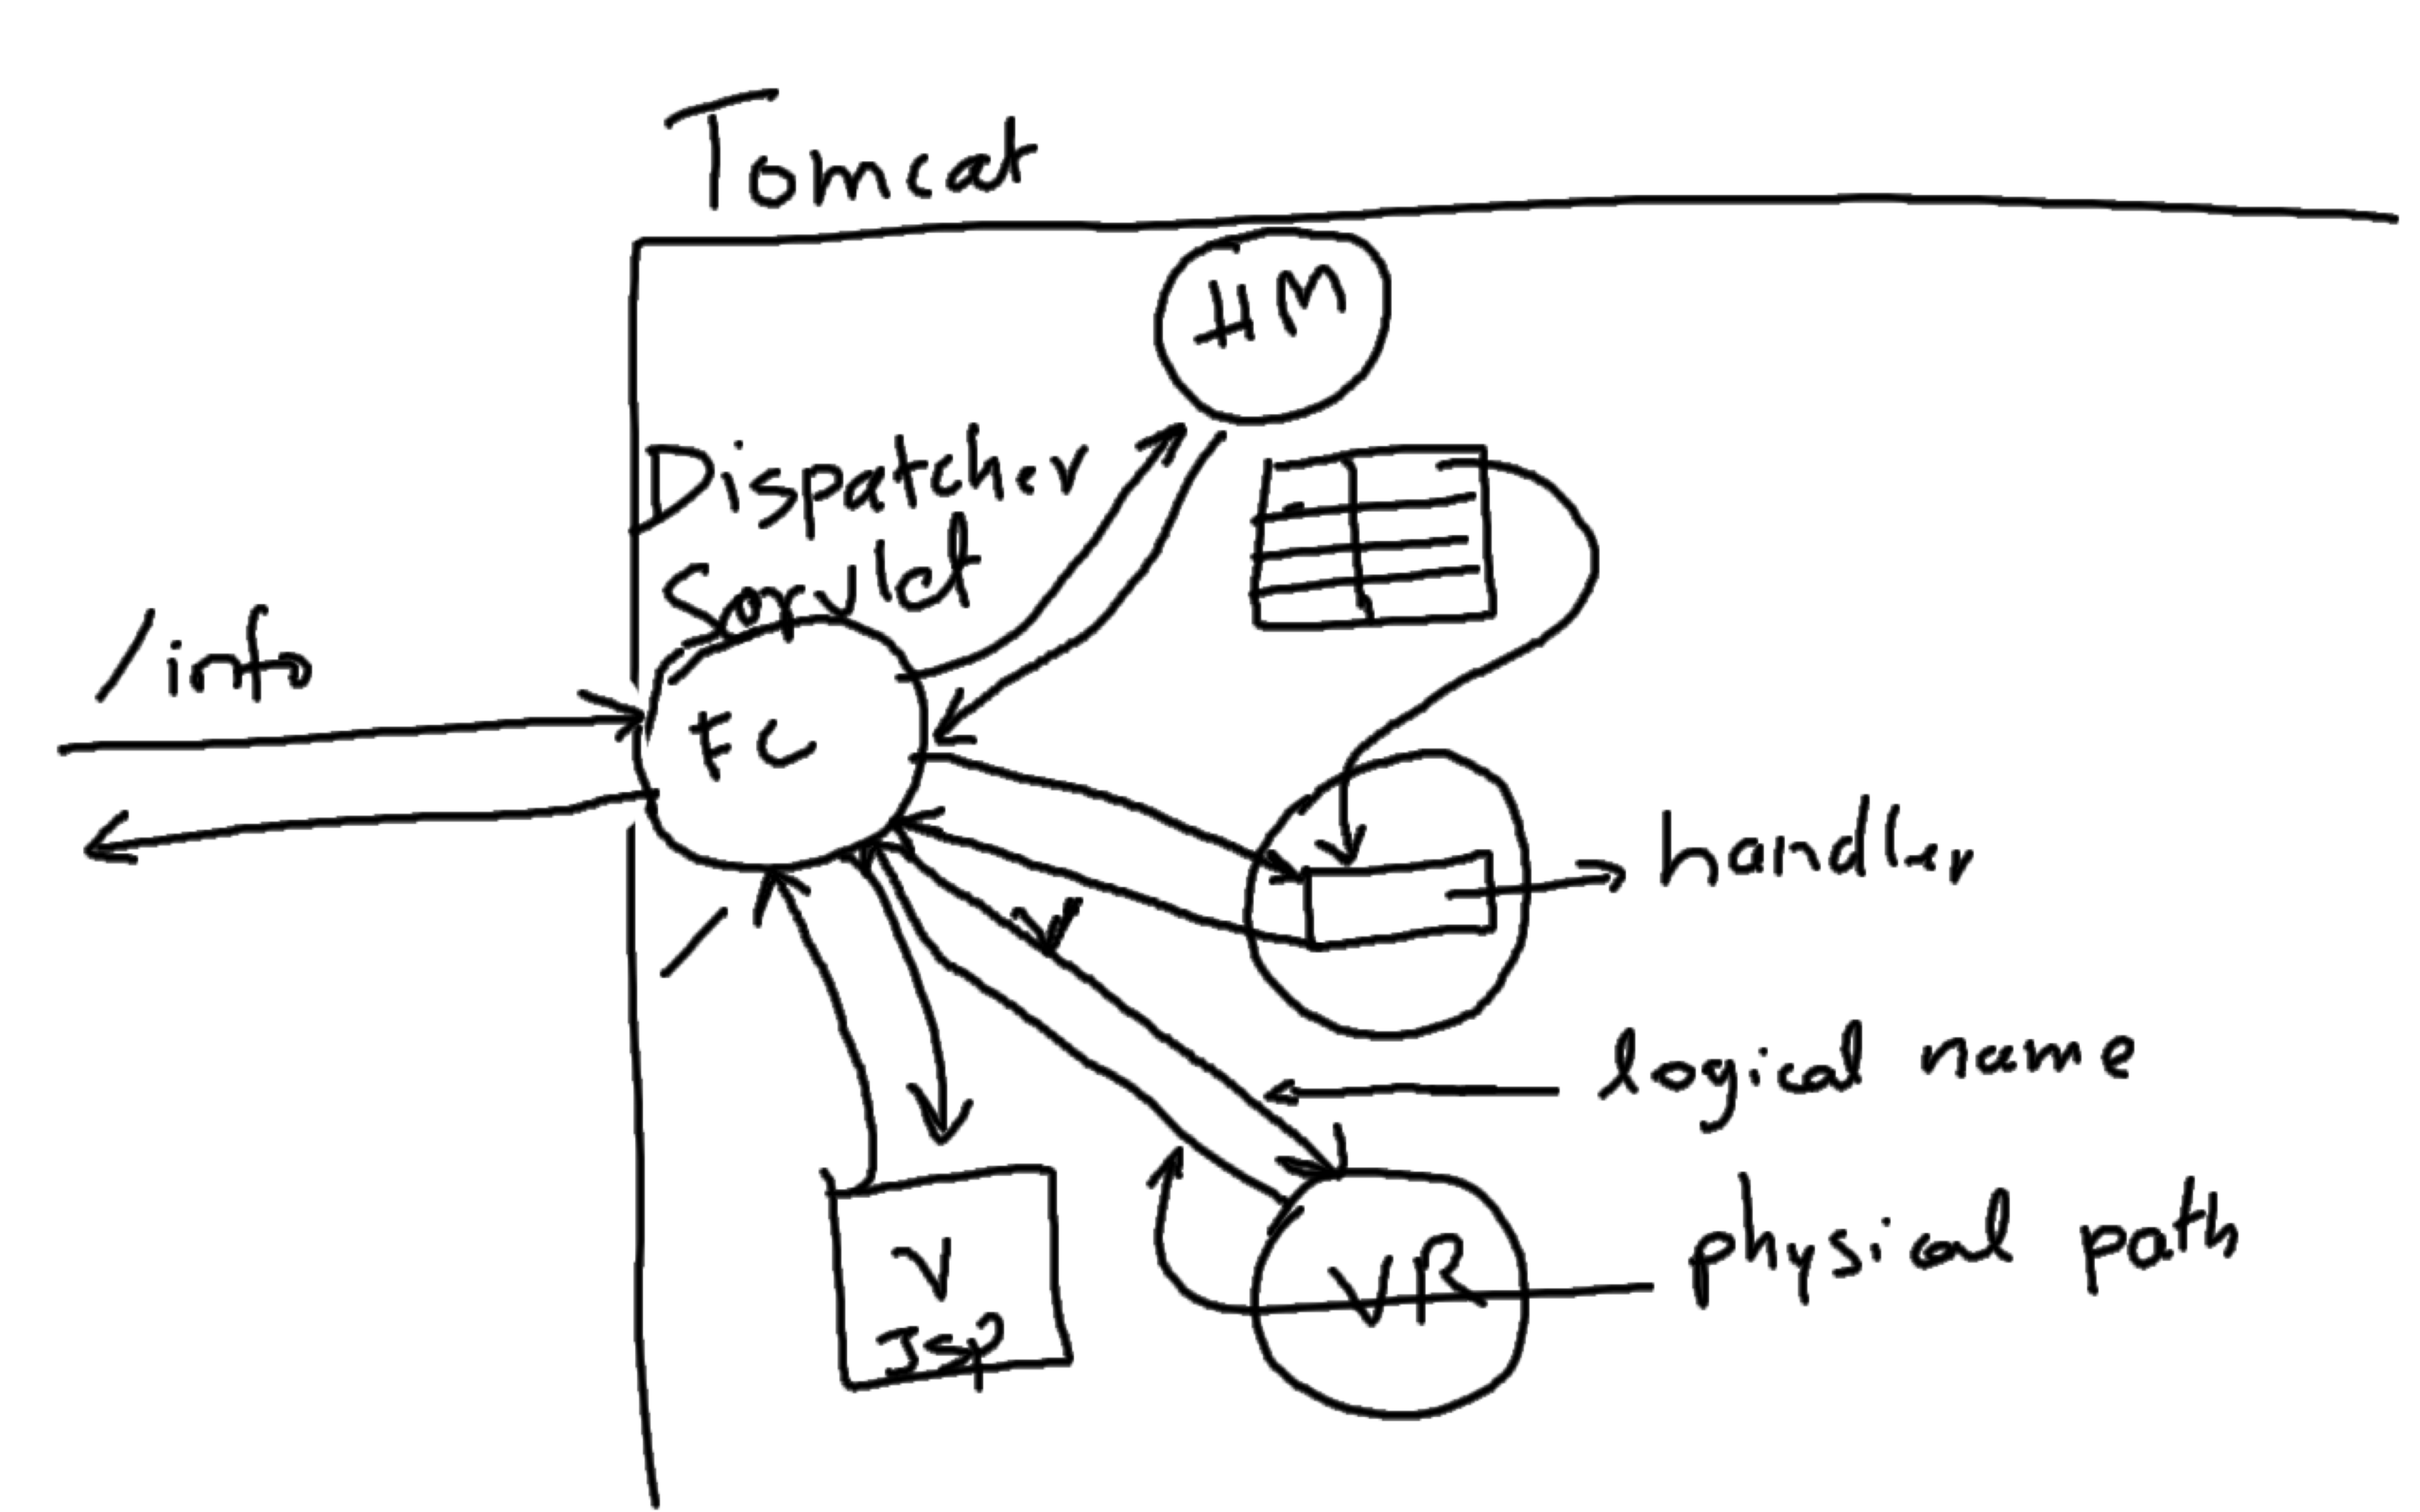 Tomcat
HM
Dispatcher
Servlet
/info
FC
handler
logical name
physical path
V
JSP
VR